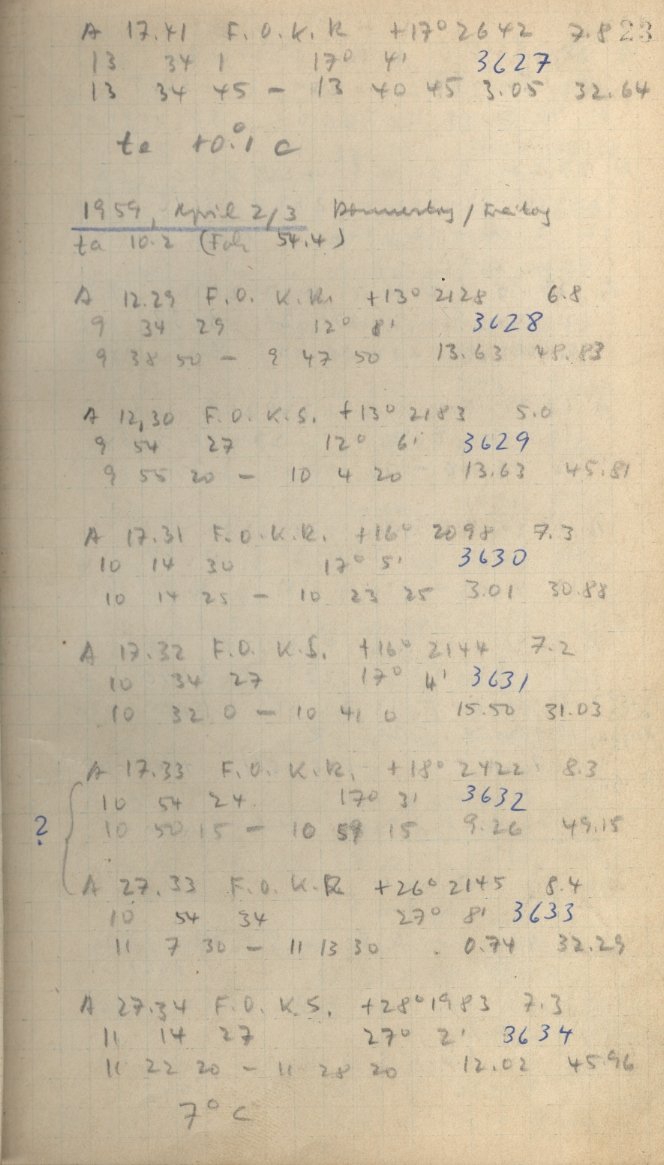 A 17.41 F.O.K.R +17° 2642 7.8 23
13 34 1 17° 4' 3627
13 34 45 - 13 40 45 3.05 32.64
te +0.°1 C
1959, April 2/3 Donnerstag / Freitag
ta 10.2 (Fah 54.4)
A 12.29 F.O. K.R. +13° 2128 6.8
9 34 29 12° 8' 3628
9 38 50 - 9 47 50 13.63 48.83
A 12.30 F.O. K.S. +13° 2183 5.0
9 54 27 12° 6' 3629
9 55 20 - 10 4 20 13.63 45.81
A 17.31 F.O.K.R. +16° 2098 7.3
10 14 30 17° 5' 3630
10 14 25 - 10 23 25 3.01 30.88
A 17.32 F.O. K.S. +16° 2144 7.2
10 34 27 17° 4' 3631
10 32 0 - 10 41 0 15.50 31.03
A 17.33 F.O. K.R. +18° 2422 8.3
10 54 24 17° 3' 3632
? 10 50 15 - 10 59 15 9.26 49.15
A 27.33 F.O. K.R +26° 2145 8.4
10 54 34 27° 8' 3633
11 7 30 - 11 13 30 0.74 32.29
A 27.34 F.O. K.S. +28° 1983 7.3
11 14 27 27° 2' 3634
11 22 20 - 11 28 20 12.02 45.96
7° C